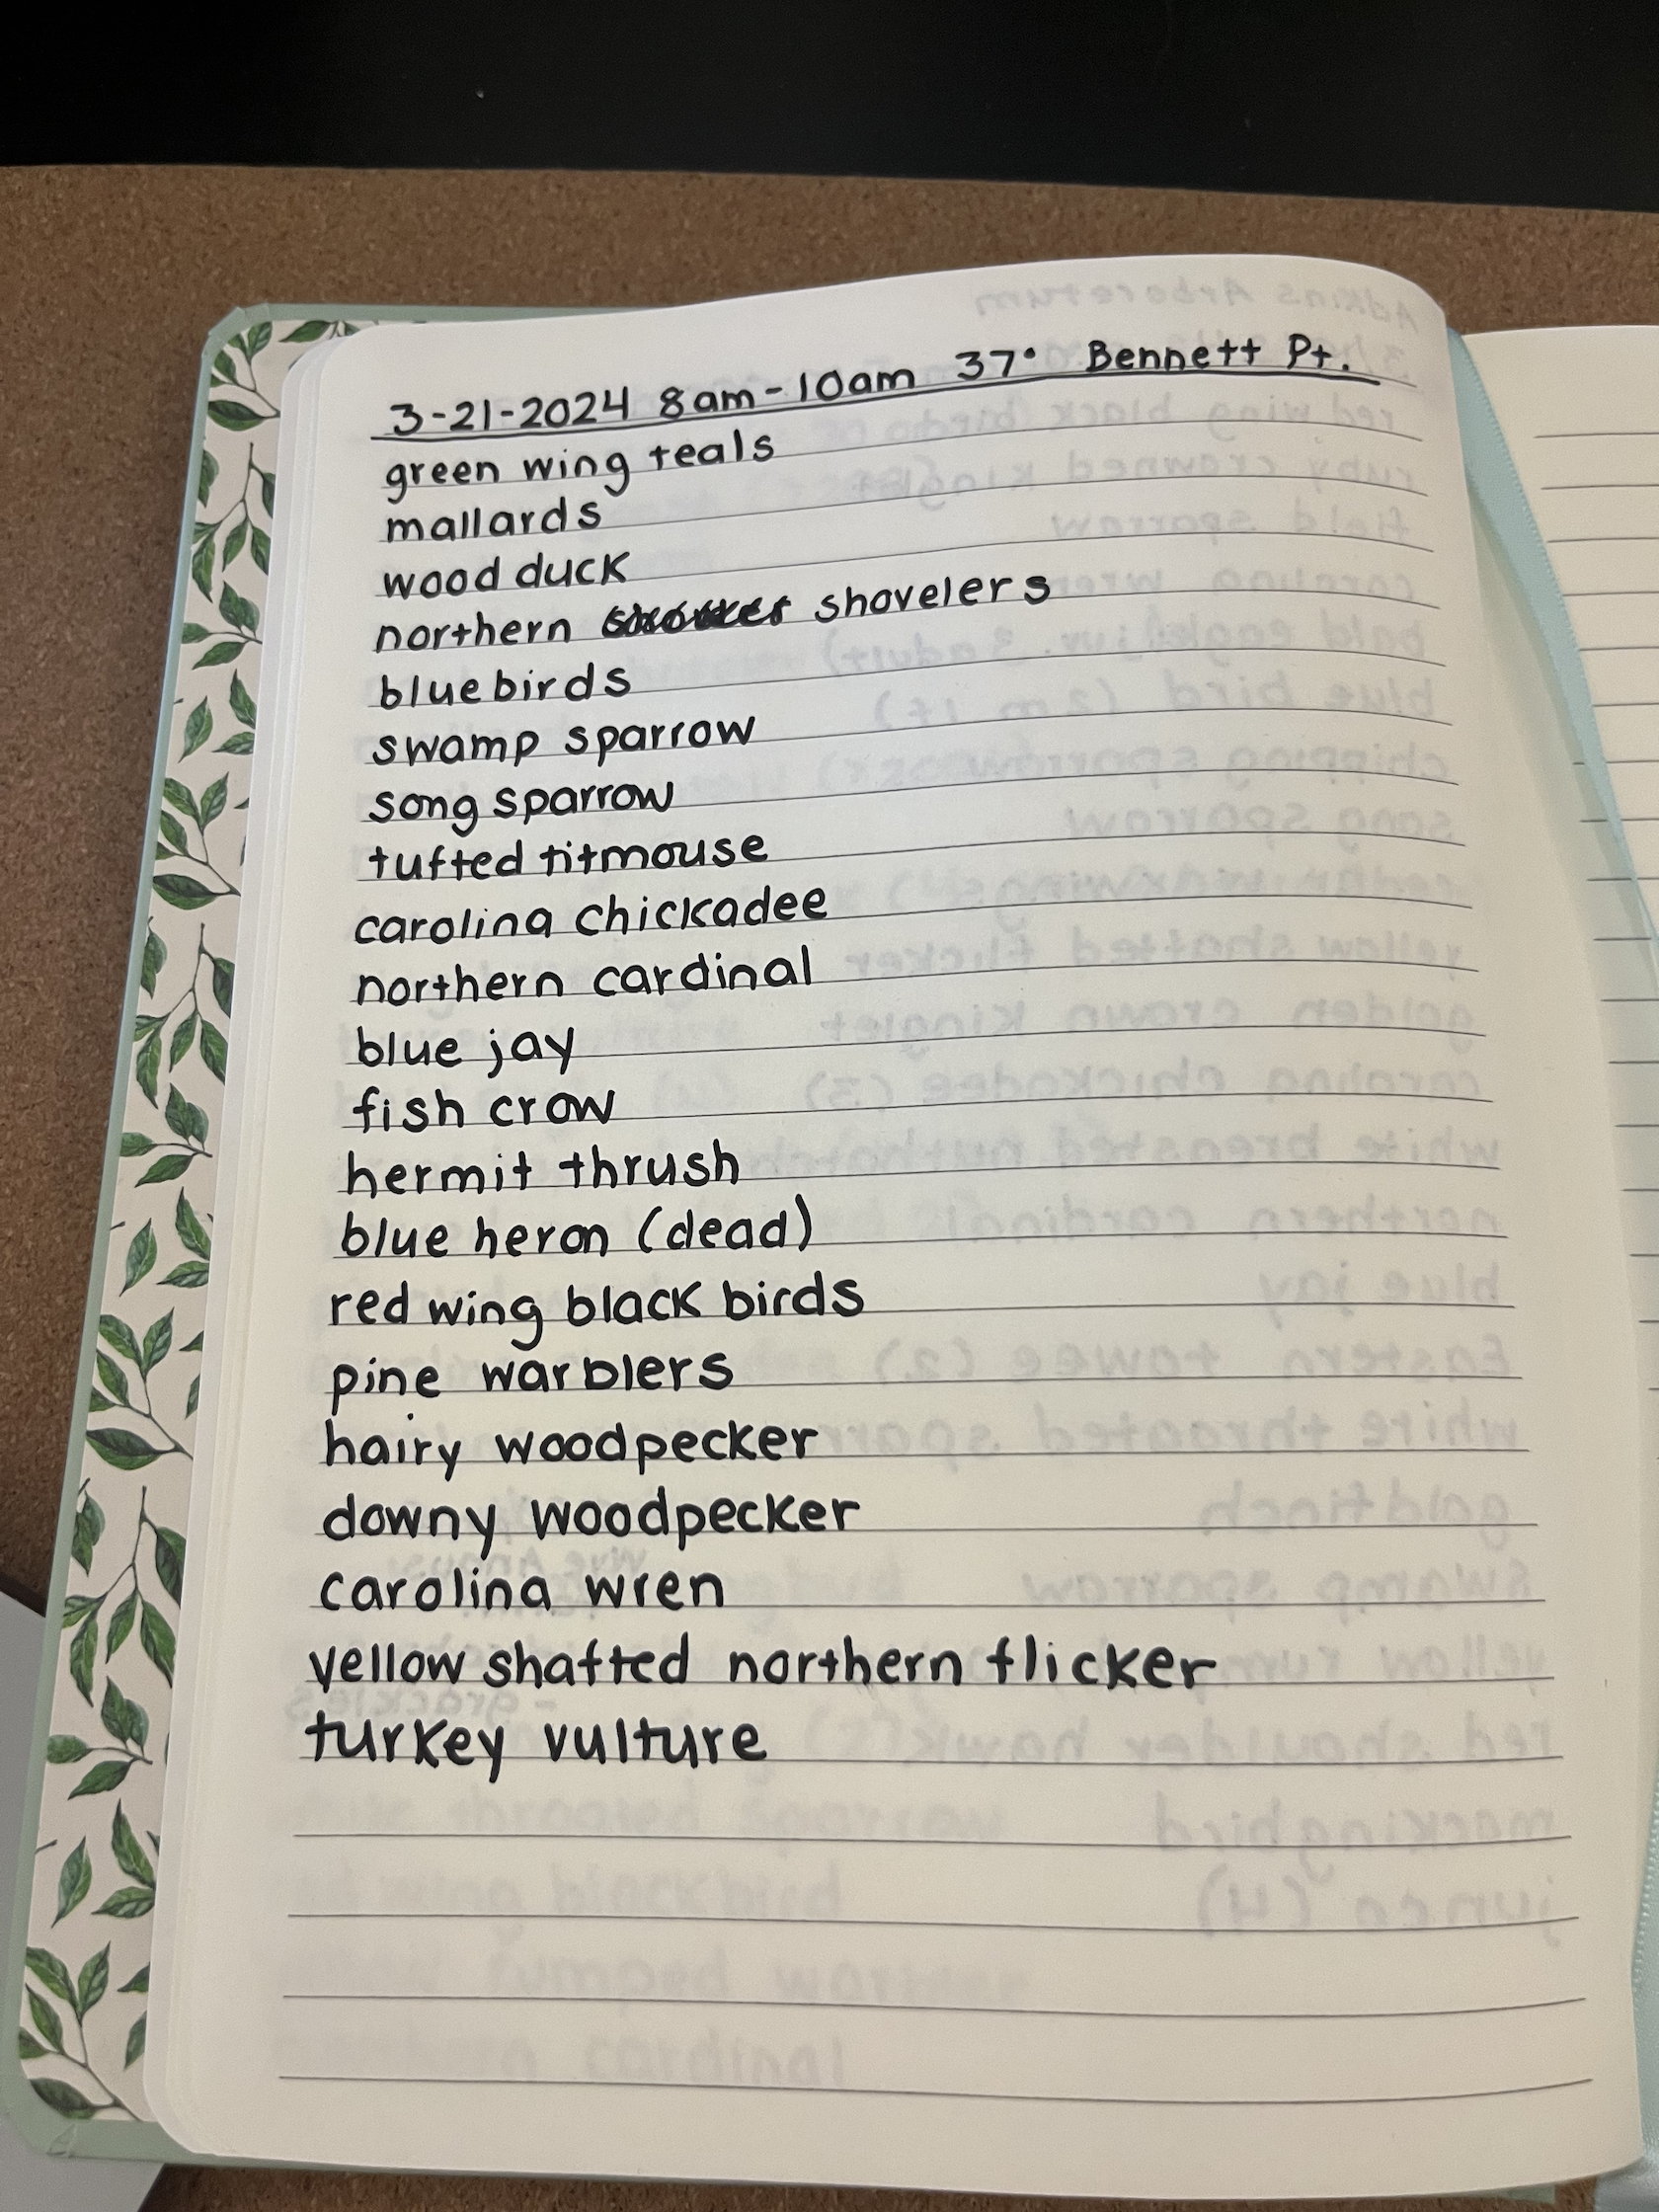 3-21-2024 8am-10am 37° Bennett Pt.
green wing teals
mallards
wood duck
northern shovelers
bluebirds
swamp sparrow
song sparrow
tufted titmouse
carolina chickadee
northern cardinal
blue jay
fish crow
hermit thrush
blue heron (dead)
red wing black birds
pine warblers
hairy woodpecker
downy woodpecker
carolina wren
yellow shafted northern flicker
turkey vulture